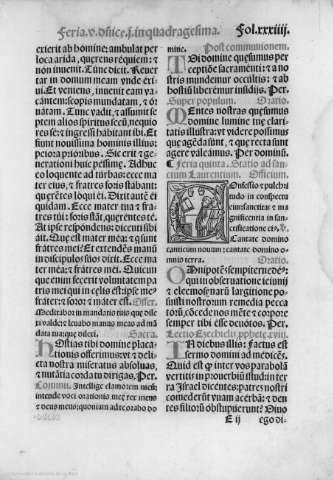 Feria.v. dñice.j. in quadragesima. Fol.xxxiiij.
exierit ab homine: ambulat per
loca arida, querens requiem: et
non inuenit. Tunc dicit. Reuer
tar in domum meam vnde exi
ui. Et veniens, inuenit eam va
cantem: scopis mundatam, et or
natam. Tunc vadit, et assumit se
ptem alios spiritus secū, nequio
res se: et ingressi habitant ibi. Et
fiunt nouissima hominis illius:
peiora prioribus. Sic erit et gene
rationi huic pessime. Adhuc
eo loquente ad turbas: ecce ma
ter eius, et fratres foris stabant:
querētes loqui ei. Dixit autē ei
quidam. Ecce mater tua et fra
tres tui: foris stāt, querentes te.
At ipse respondens: dicenti sibi
ait. Que est mater mea: et qui sunt
fratres mei? Et extendēs manū
in discipulos suos dixit. Ecce ma
ter mea: et fratres mei. Quicun
que enim fecerit voluntatem pa
tris mei qui in celis est: ipse meus
frater: et soror et mater est. Offer.
Meditabor in mandatis tuis que dile
xi valde: et leuabo manus meas ad mā
data tua que dilexi. Secra.
Hostias tibi domine placa
tionis offerimus: vt et deli
cta nostra miseratus absoluas,
et nutātia corda tu dirigas. Per.
Commu. Intellige clamorem meū:
intende voci orationis mee rex meus
et deus meus: quoniam ad te orabo do
mine. Post communionem.
Tui domine quesumus per
ceptiōe sacramenti: et a no
stris mundemur occultis: et ab
hostiū liberemur insidijs. Per.
Super populum. Oratio.
Mentes nostras quesumus
domine lumine tue clari
tatis illustra: vt videre possimus
que agēda sunt, et que recta sunt
agere valeamus. Per dominū.
Feria quinta. Statio ad san
ctum Laurentium. Officium.
Confessio et pulchri
tudo in conspectu
eius: sanctitas et ma
gnificentia in san
ctificatione eius. ps.
Cantate domino
canticum nouum: cantate domino o
mnis terra. Oratio.
Omnipotēs sempiterne deus:
qui in obseruatione ieiunij
et eleemosynarū largitione po
suisti nostrorum remedia pecca
torū, cōcede nos mente et corpore
semper tibi esse deuotos. Per.
Lectio Ezechielis pphete. xviij.
In diebus illis: factus est
sermo domini ad me dicēs.
Quid est quod inter vos parabolā
vertitis in prouerbiū istud in ter
ra Israel dicentes: patres nostri
comederūt vuam acerbā: et den
tes filiorū obstupuerunt? Viuo
E ij ego di-